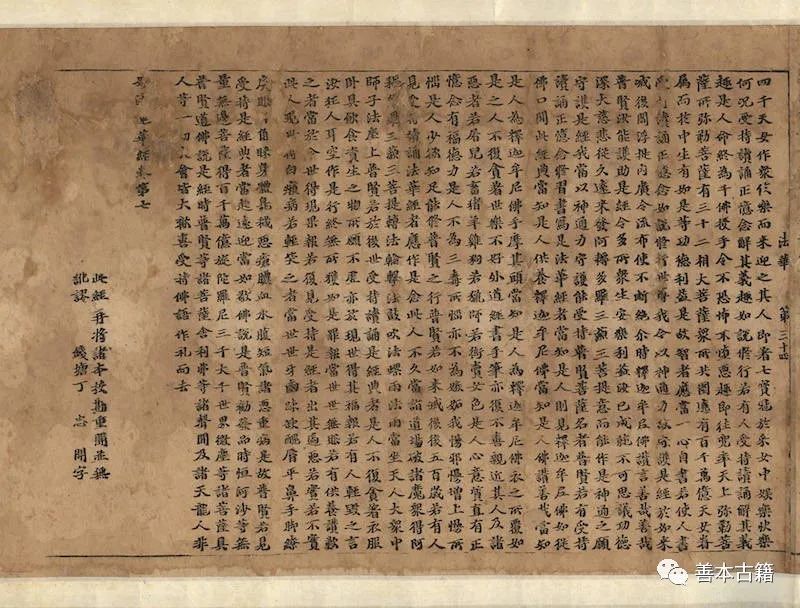 法華 第三十
四千天女作衆伎樂而來迎之其人即著七寶冠於采女中娛樂快樂
何況受持讀誦正憶念解其義趣如說修行若有人受持讀誦解其義
趣是人命終為千佛授手令不恐怖不墮惡趣即往兜率天上弥勒菩
薩所弥勒菩薩有三十二相大菩薩衆所共圍遶有百千萬億天女眷
屬而於中生有如是等功德利益是故智者應當一心自書若使人書
受持讀誦正憶念如說修行世尊我今以神通力故守護是經於如來
滅後閻浮提內廣令流布使不斷絕余時釋迦牟尼佛讚言善哉善哉
普賢汝能護助是經令多所衆生安樂利益汝已成就不可思議功德
深大慈悲從久遠來發阿耨多羅三藐三菩提意而能作是神通之願
守護是經我當以神通力守護能受持普賢菩薩名者普賢若有受持
讀誦正憶念修習書寫是法華經者當知是人則見釋迦牟尼佛如從
佛口聞此經典當知是人供養釋迦牟尼佛當知是人佛讚善哉當知
是人為釋迦牟尼佛手摩其頭當知是人為釋迦牟尼佛衣之所覆如
是之人不復貪著世樂不好外道經書手筆亦復不喜親近其人及諸
惡者若屠兒若畜猪羊雞狗若獵師若衒賣女色是人心意質直有正
憶念有福德力是人不為三毒所惱亦不為嫉妬我慢邪慢增上慢所
惱是人少欲知足能修普賢之行普賢若如來滅後後五百歲若有人
見受持讀誦法華經者應作是念此人不久當詣道場破諸魔衆得阿
耨多羅三藐三菩提轉法輪擊法鼓吹法螺雨法雨當坐天人大衆中
師子法座上普賢若於後世受持讀誦是經典者是人不復貪著衣服
卧具飲食資生之物所願不虛亦於現世得其福報若有人輕毀之言
汝狂人耳空作是行終無所獲如是罪報當世世無眼若有供養讚歎
之者當於今世得現果報若復見受持是經者出其過惡若實若不實
此人現世得白癩病若輕笑之者當世世牙齒踈缺醜脣平鼻手脚繚
戾眼目角睞身體臭穢惡瘡膿血水腹短氣諸惡重病是故普賢若見
受持是經典者當起遠迎當如敬佛說是普賢勸發品時恒河沙等無
量無邊菩薩得百千萬億旋陀羅尼三千大千世界微塵等諸菩薩具
普賢道佛說是經時普賢等諸菩薩舍利弗等諸聲聞及諸天龍人非
人等一切大會皆大歡喜受持佛語作礼而去
妙法蓮華經卷第七
此經一再將諸本校勘重開並無
訛謬 錢塘丁 忠 開字
善本古籍